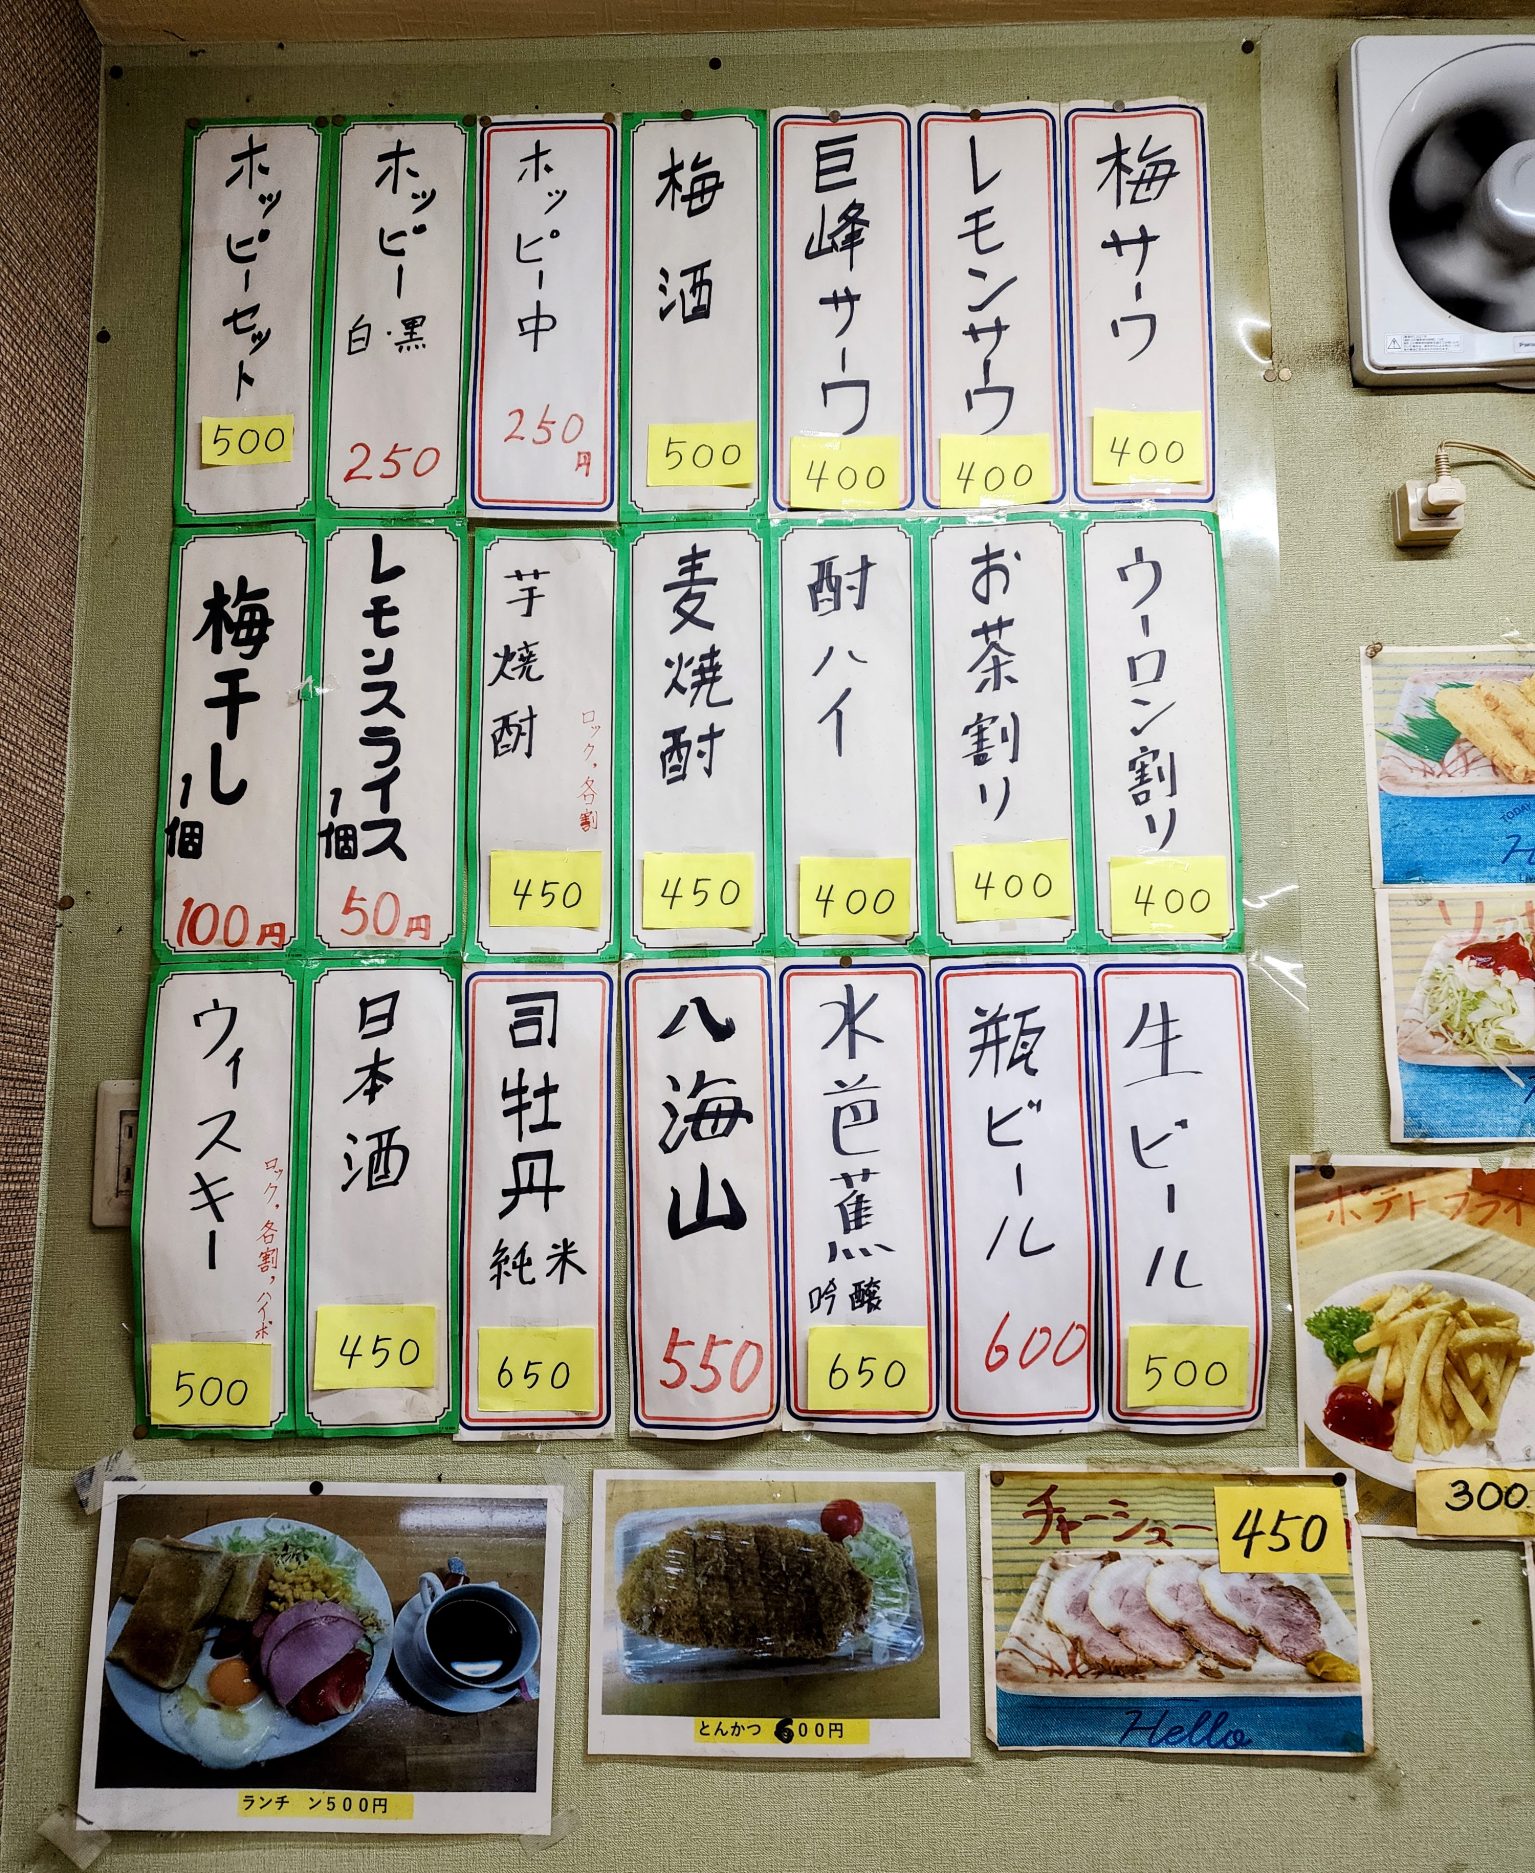 梅サーワ
400
レモンサーワ
400
巨峰サーワ
400
梅酒
500
ホッピー中
250円
ホッピー
白・黒
250
ホッピーセット
500
ウーロン割り
400
お茶割り
400
酎ハイ
400
麦焼酎
450
芋焼酎
ロック。各割
450
レモンスライス
1個
50円
梅干し
1個
100円
生ビール
500
瓶ビール
600
水芭蕉
吟醸
650
八海山
550
司牡丹
純米
650
日本酒
450
ウィスキー
ロック。各割,ハイボ
500
ポテトフライ
300
チャーシュー
450
Hello
とんかつ 600円
ランチ ン500円